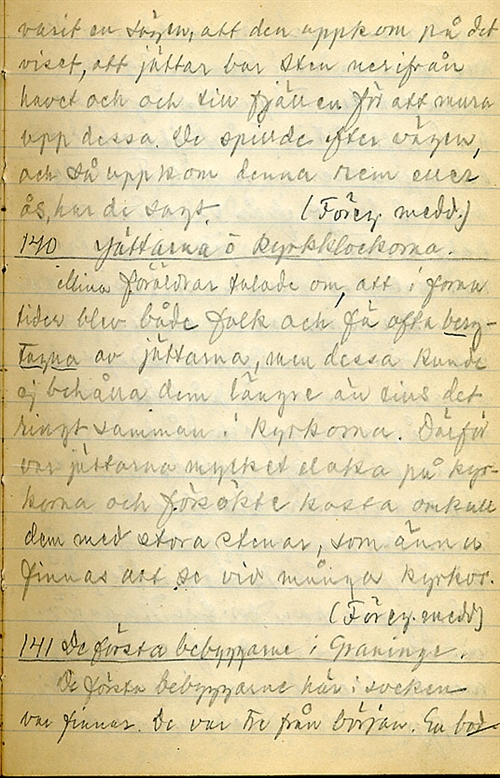 varit en sägen, att den uppkom på det
viset, att jättar bar sten nerifrån
havet och och till fjällen för att mura
upp dessa. De spillde efter vägen,
och så uppkom denna rem eller
ås, har de sagt. (Föreg. medd.)
140 Jättarna o kyrkklockorna.
Mina föräldrar talade om, att i forna
tider blev både folk och fä ofta berg-
tagna av jättarna, men dessa kunde
ej behålla dem längre än tills det
ringt samman i kyrkorna. Därför
var jättarna mycket elaka på kyr-
korna och försökte kasta omkull
dem med stora stenar, som ännu
finnas att se vid många kyrkor.
(Föreg. medd)
141 De första bebyggarne i Graninge.
De första bebyggarne här i socken
var finnar. De var tre från början. En bod-